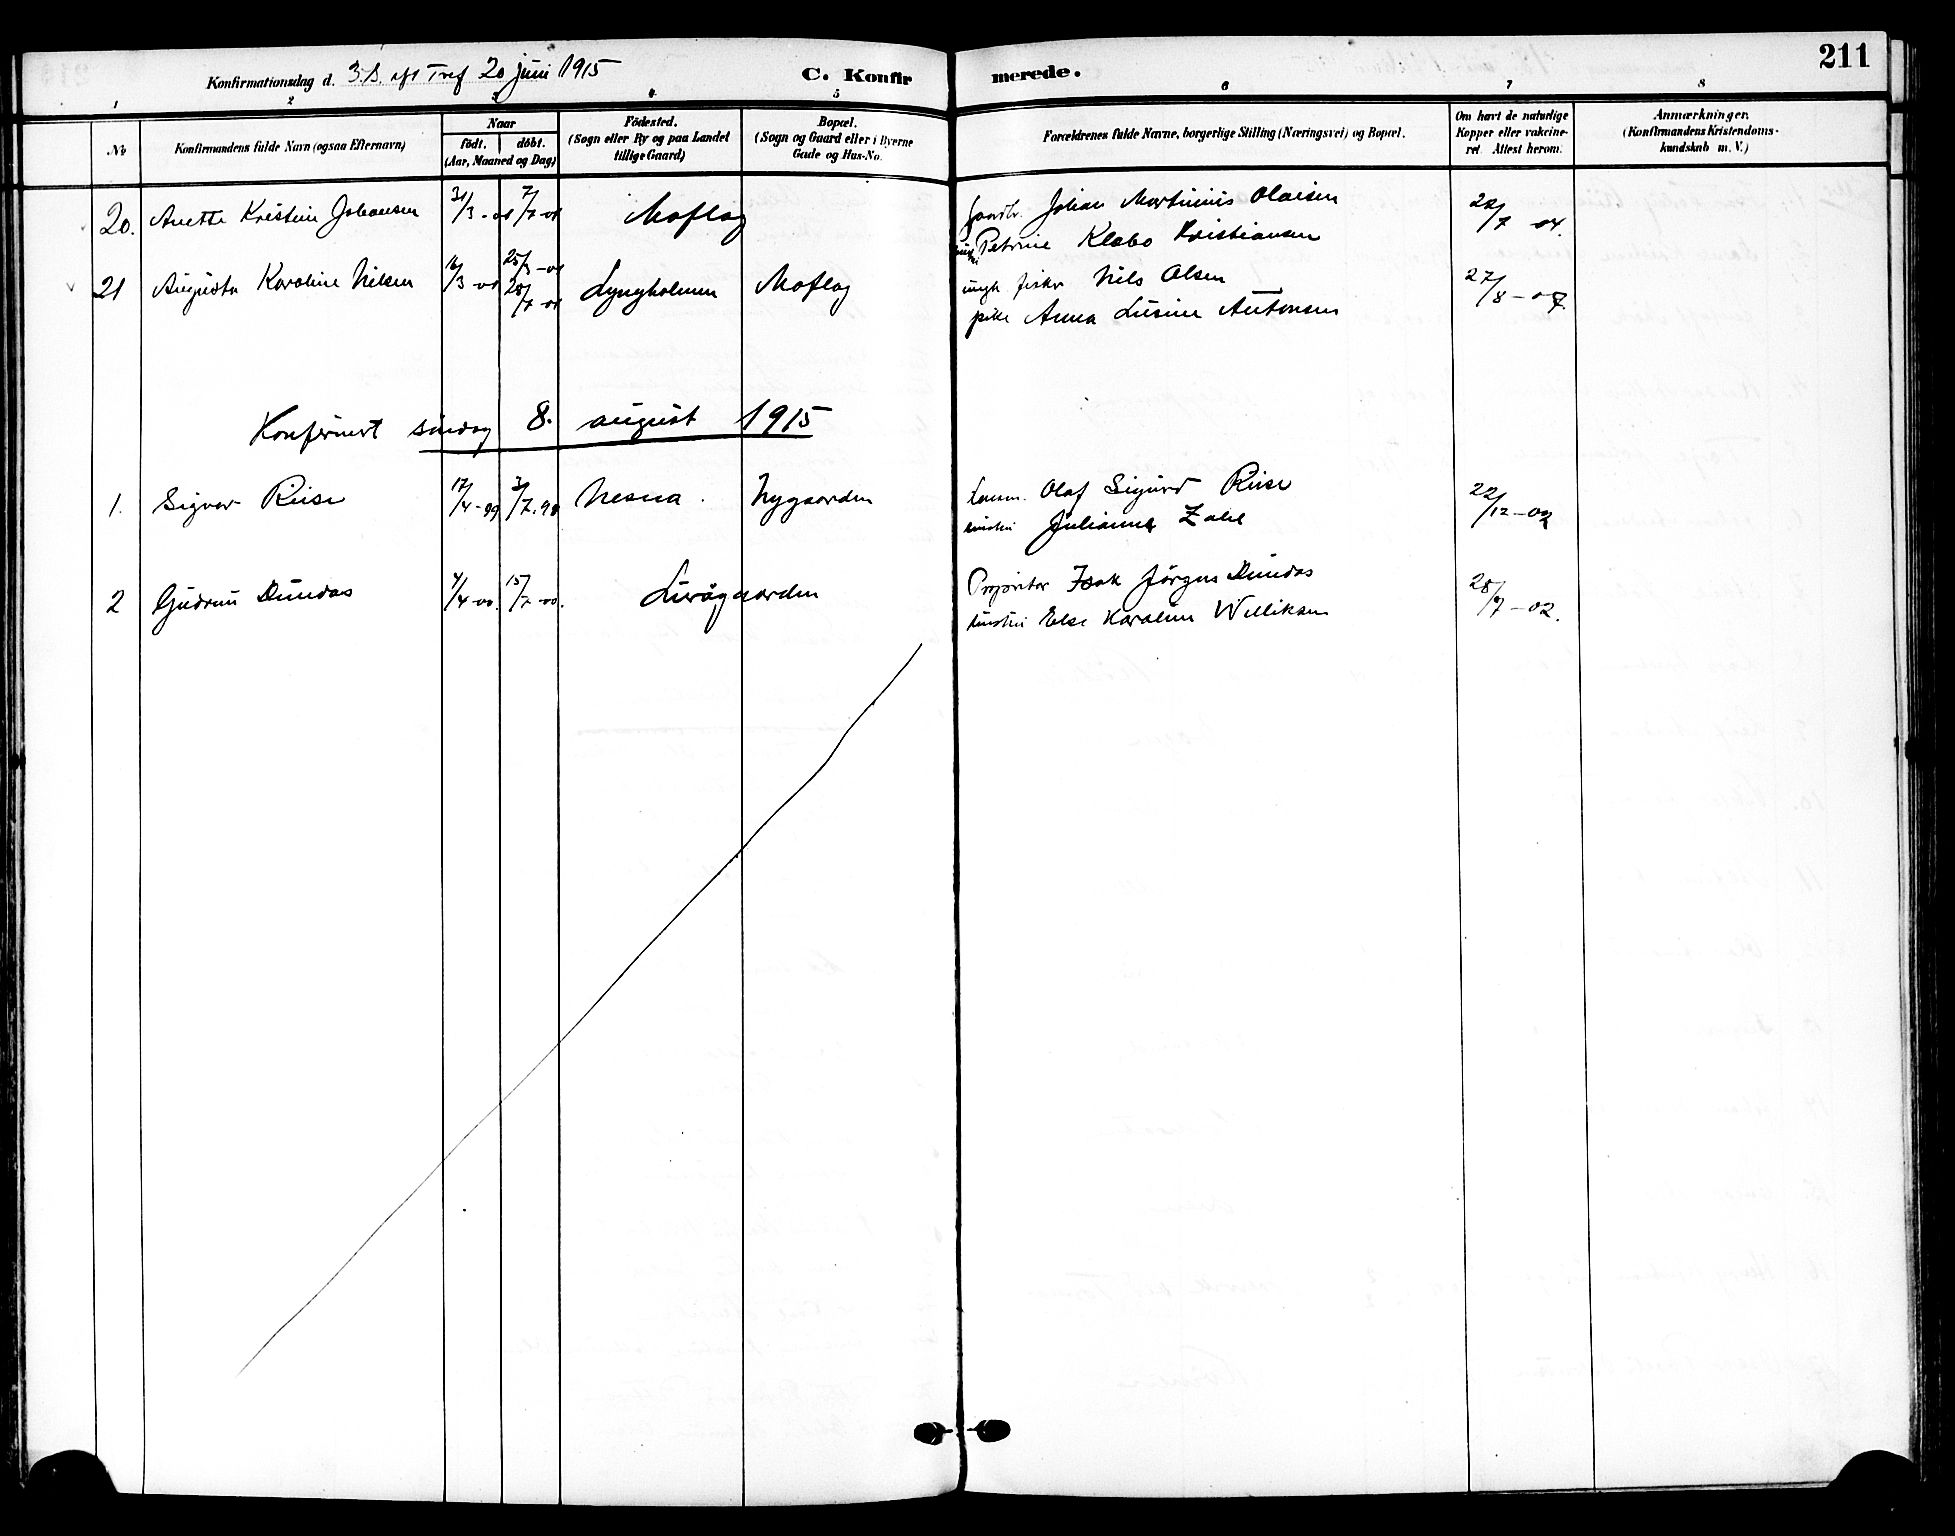 211
Konfirmationsdag d. 3. S. eft Tref 20 juni 1915 C. Konfirmerede.
1 2 3 4 5 6 7 8
No
Konfirmandens fulde Navn (ogsaa Efternavn)
Naar
födt. döbt.
(Aar, Maaned og Dag)
Födested.
(Sogn eller By og paa Landet
tillige Gaard)
Bopæl.
(Sogn og Gaard eller i Byerne
Gade og Hus-No.
Forældrenes fulde Navne, borgerlige Stilling (Næringsvei) og Bopæl.
Om havt de naturlige
Kopper eller vakcine-
ret. Attest herom.
Anmærkninger.
(Konfirmandens Kristendoms-
kundskab m. V.)
20. Anette Kristine Johansen 31/3 - 01 7/7 - 01 Moflag Gaardbr. Johan Martinius Olaisen 22/7 04.
Petrine Klabo Kristiansen
21 Augusta Karoline Nilsen 16/3 - 01 25/3 - 01 28/7 - 01 Lyngholmen Moflag ungk fisker Nils Olsen 27/8 - 07.
pike Anna Lusine Antonsen
Konfirmert søndag 8. august 1915
1. Sigvor Riise 17/4 - 99 3/7. 99 Nesna. Nygaarden Lensm. Olaf Sigurd Riise 22/12 - 02
hustru Julianne Zahl
2 Gudrun Dundas 4/4 - 00. 15/7 - 00. Lurøgaarden Proprietør Isak Jørgen Dundas 28/7 - 02.
hustru Else Karoline Williksen